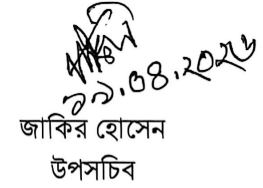 ১৯.০৪.২০২৬
জাকির হোসেন
উপসচিব